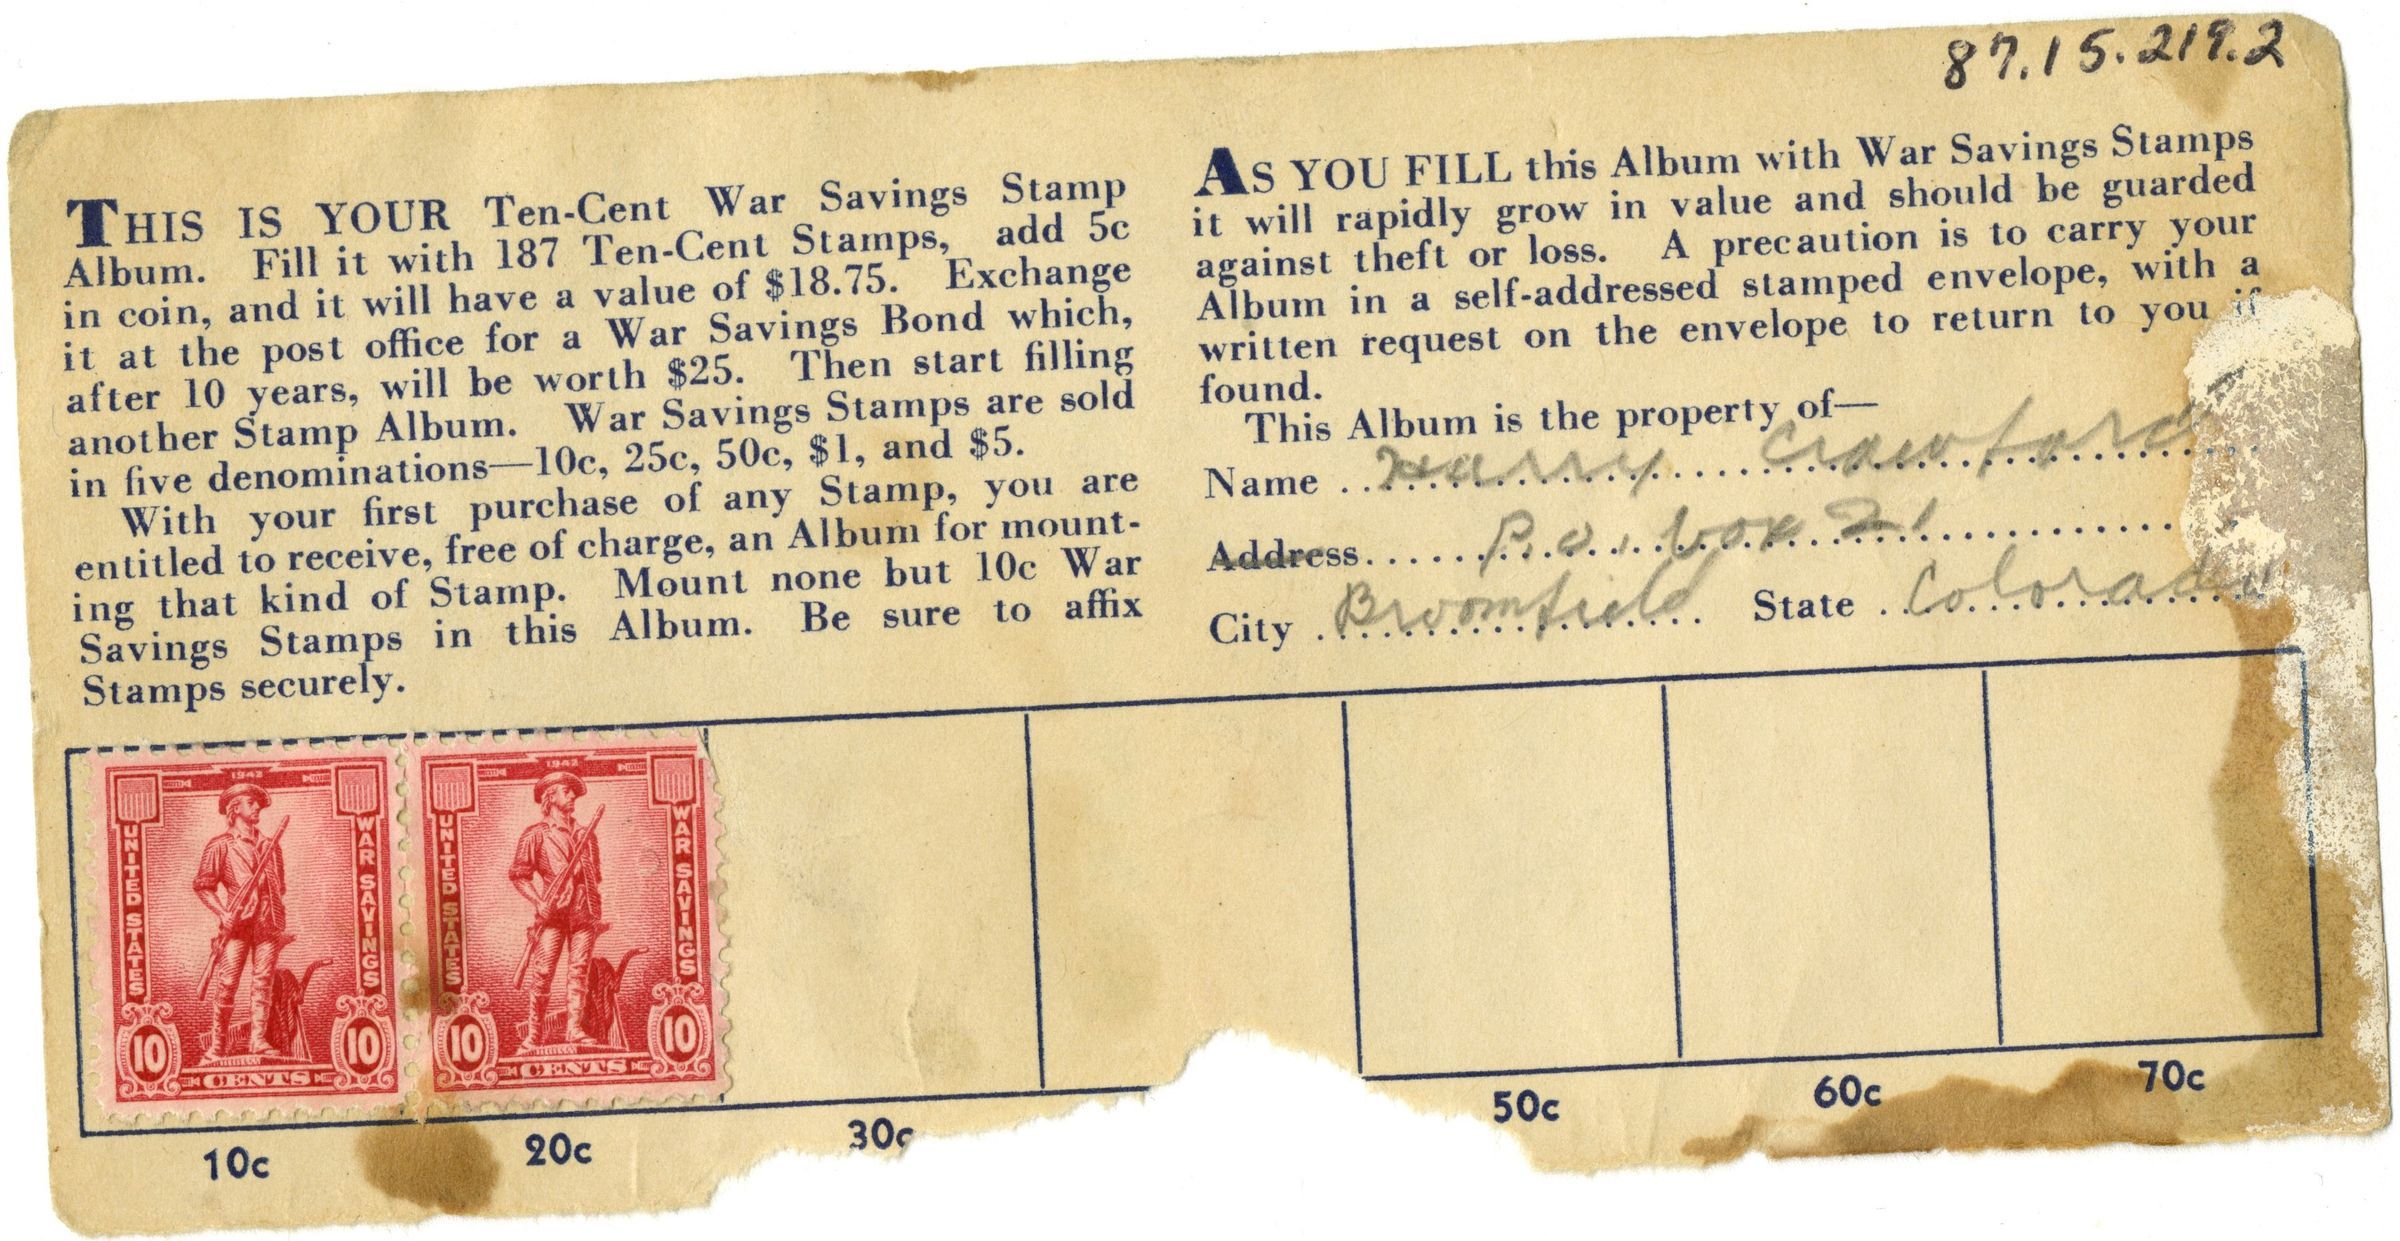 87.15.219.2
THIS IS YOUR Ten-Cent War Savings Stamp
Album. Fill it with 187 Ten-Cent Stamps, add 5c
in coin, and it will have a value of $18.75. Exchange
it at the post office for a War Savings Bond which,
after 10 years, will be worth $25. Then start filling
another Stamp Album. War Savings Stamps are sold
in five denominations—10c, 25c, 50c, $1, and $5.
With your first purchase of any Stamp, you are
entitled to receive, free of charge, an Album for mount-
ing that kind of Stamp. Mount none but 10c War
Savings Stamps in this Album. Be sure to affix
Stamps securely.
AS YOU FILL this Album with War Savings Stamps
it will rapidly grow in value and should be guarded
against theft or loss. A precaution is to carry your
Album in a self-addressed stamped envelope, with a
written request on the envelope to return to you if
found.
This Album is the property of—
Name Harry Crawford
Address P.O. box 21
City Broomfield State Colorado
1942
UNITED STATES
WAR SAVINGS
10 10
CENTS
1942
UNITED STATES
WAR SAVINGS
10 10
CENTS
10c 20c 30c 50c 60c 70c